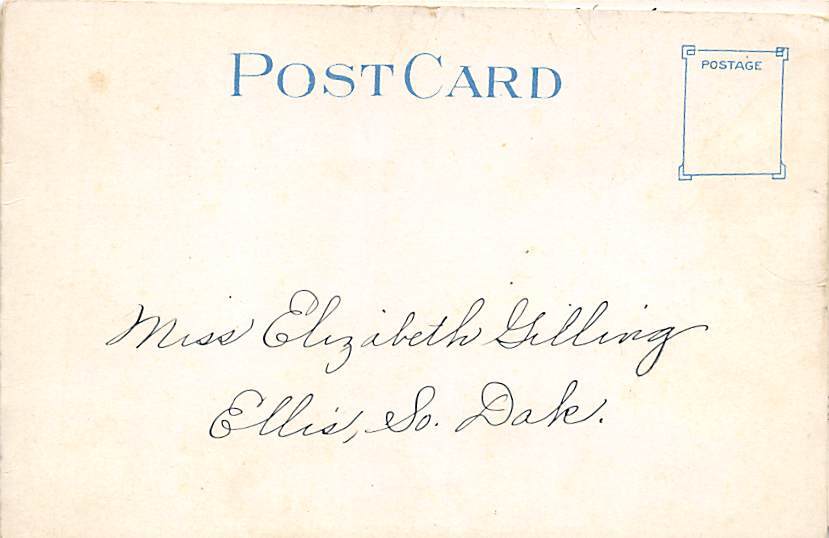 POST CARD
POSTAGE
Miss Elizabeth Gilling
Ellis, So. Dak.